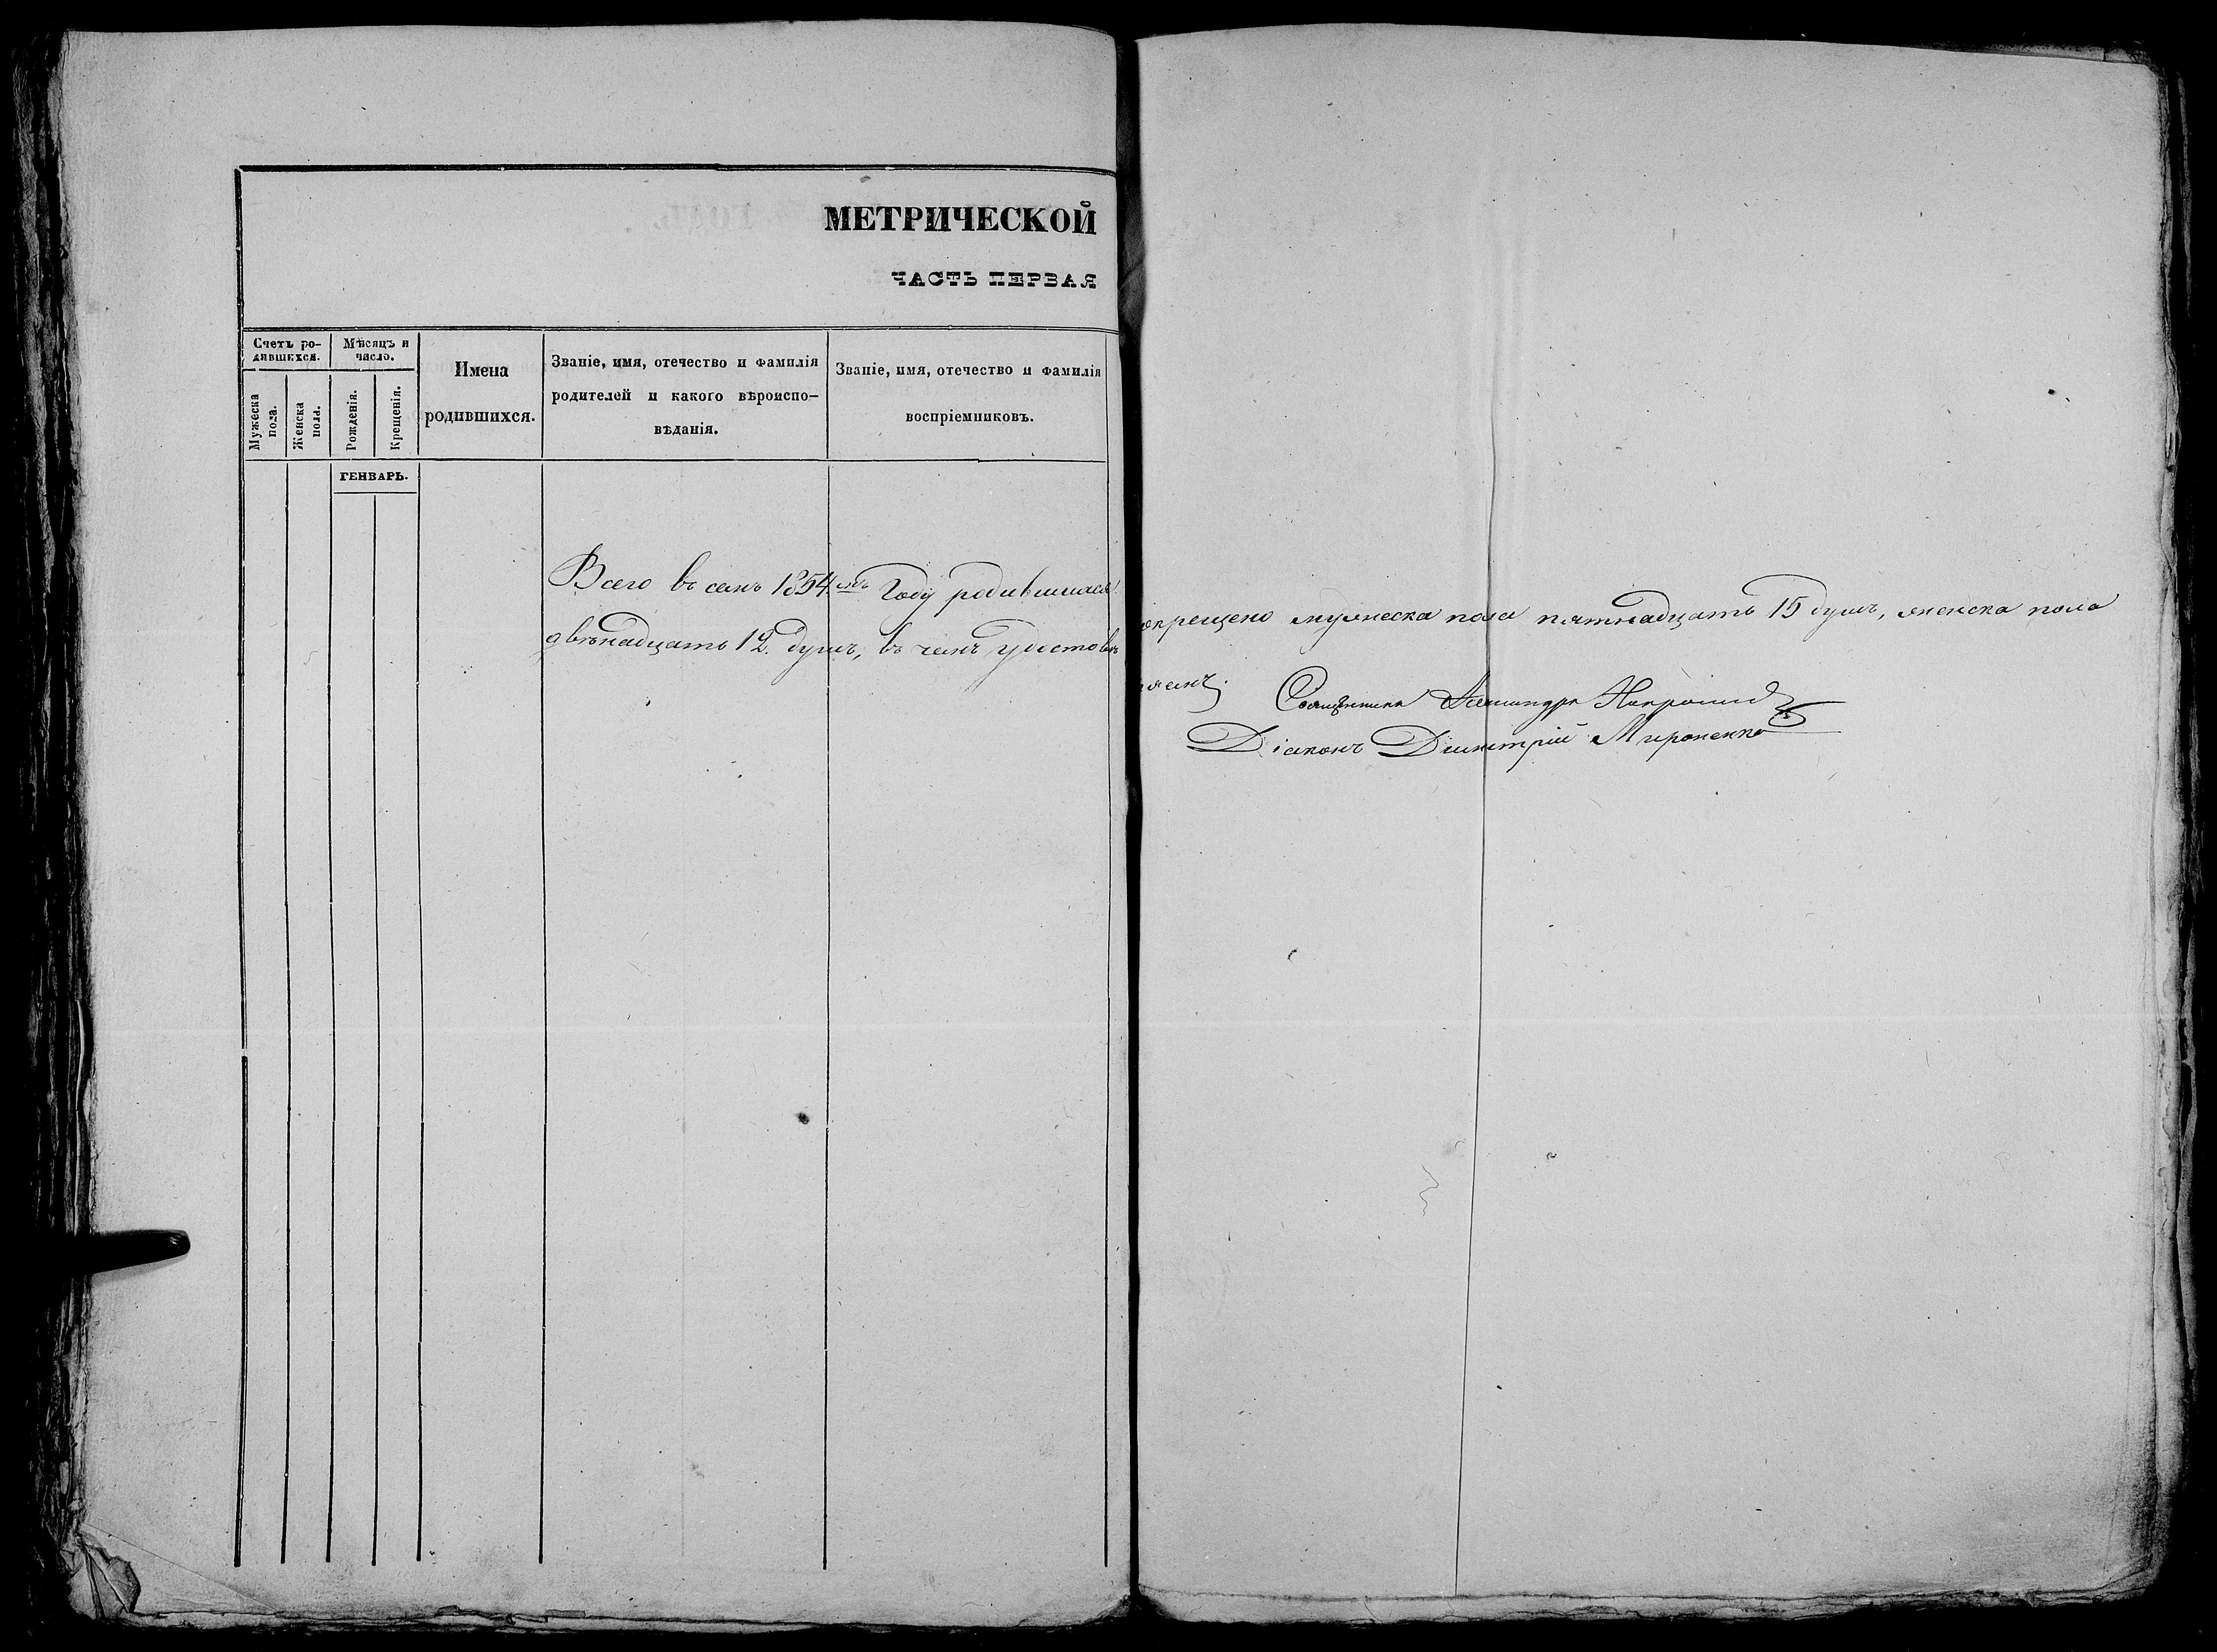 МЕТРИЧЕСКОЙ
ЧАСТЬ ПЕРВАЯ
Счетъ ро-
дившихся.
Мѣсяцъ и
число.
Мужеска
пола.
Женска
пола.
Рожденія.
Крещенія.
Имена
родившихся.
Званіе, имя, отечество и фамилія
родителей и какого вѣроиспо-
вѣданія.
Званіе, имя, отечество и фамилія
воспріемниковъ.
ГЕНВАРЬ.
Всего въ семъ 1854.мъ Году родившихся
окрещено мужеска пола пятнадцать 15 душъ, женска пола
двѣнадцать 12. душъ, въ чемъ удостовѣ
ряемъ.
Священникъ
Діаконъ Димитрій Мироненко